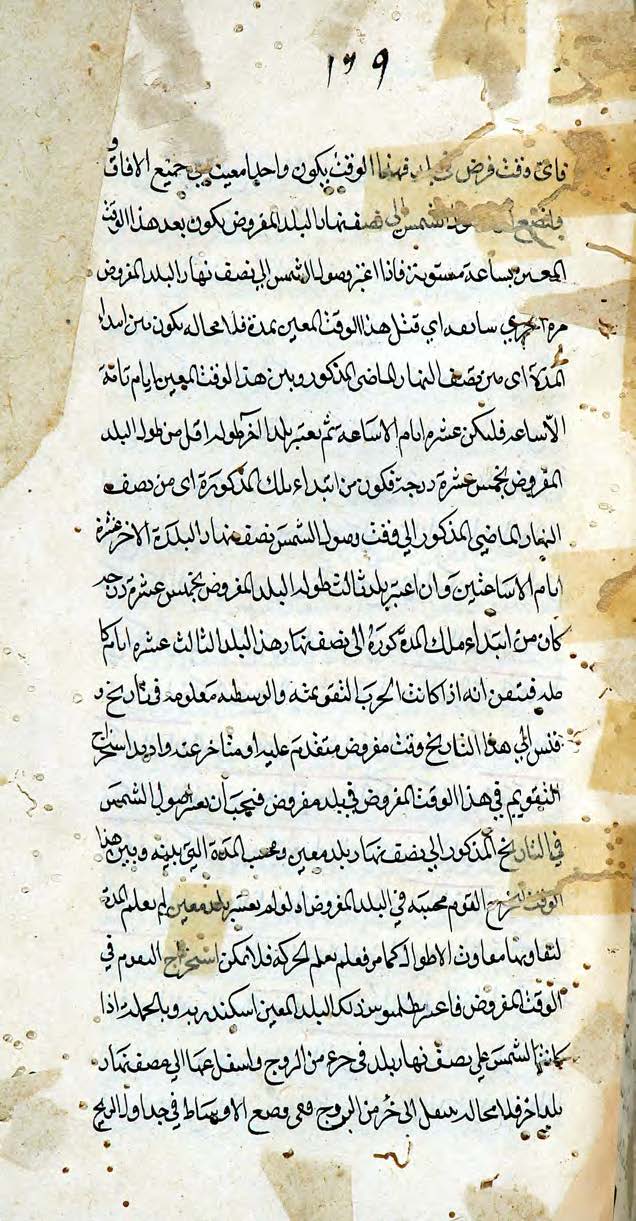 ١٦٩
فاى وقت فرض فى بلد فهذا الوقت يكون واحدا معينا فى جميع الافاق و
الشمس الى نصف نهار البلد المفروض يكون بعد هذا الوقت
المعين بساعة مستوية فاذا اعتبر وصول الشمس الى نصف نهار البلد المفروض
مرة اخرى سابقه اى قبل هذا الوقت المعين بمدة فلا محاله يكون من ابتداء
المدة اى من نصف النهار الماضى المذكور وبين هذا الوقت المعين ايام تامة
الا ساعه فليكن عشره ايام الا ساعه ثم نعتبر بلدا اخر طوله اقل من طول البلد
المفروض بخمس عشرة درجة فيكون من ابتداء تلك المذكورة اى من نصف
النهار الماضى المذكور الى وقت وصول الشمس نصف نهار البلدة الاخر عشرة
ايام الا ساعتين وان اعتبر بلد ثالث طوله البلد المفروض بخمس عشرة درجه
كان من ابتداء تلك المدة المذكورة الى نصف نهار هذا البلد الثالث عشره ايام
انه اذا كانت الحركة التقويمية والوسطيه معلومه فى تاريخ و
الى هذا التاريخ وقت مفروض متقدم عليه او متاخر عنه واريد استخراج
التقويم فى هذا الوقت المفروض فى بلد مفروض فيجب ان نعتبر وصول الشمس
فى التاريخ المذكور الى نصف نهار بلد معين ونحسب المدة التى بينه وبين هذا
الوقت التقويم بحسبه فى البلد المفروض اذ لو لم يعتبر بلد معين لم يعلم المدة
لتفاوتها بتفاوت الاطوال كما مر فلم نعلم الحركه فلا يمكن استخراج التقويم فى
الوقت المفروض فاعتبر بطلميوس ذلك البلد المعين اسكندريه وبالجملة اذا
كانت الشمس على نصف نهار بلد فى جزء من البروج وانتقل عنها الى نصف نهار
بلد اخر فلا محاله ينتقل الى جزء من البروج ففى وضع الاوساط فى جداول الزيج